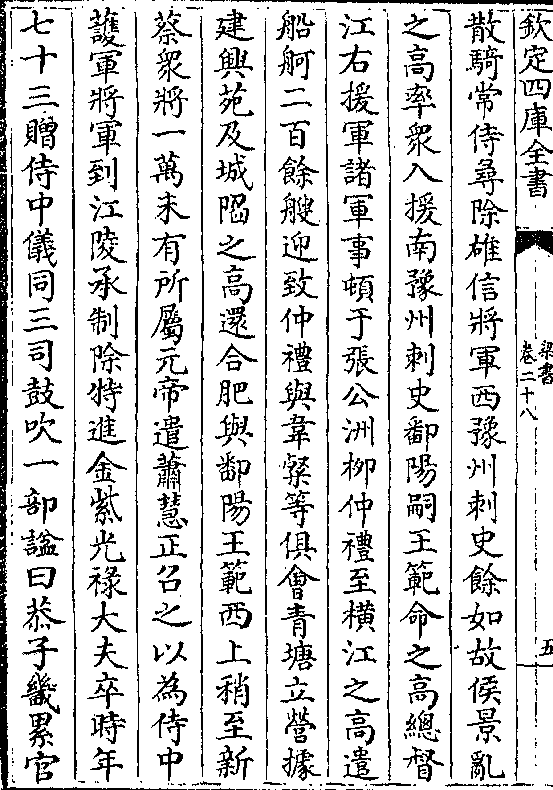 欽定四庫全書
梁書
卷二十八
五
散騎常侍尋除雄信將軍西豫州刺史餘如故侯景亂
之高率衆入援南豫州刺史鄱陽嗣王範命之高總督
江右援軍諸軍事頓于張公洲柳仲禮至橫江之高遣
船舸二百餘艘迎致仲禮與韋粲等俱會青塘立營據
建興苑及城陷之高還合肥與鄱陽王範西上稍至新
蔡衆將一萬未有所屬元帝遣蕭慧正召之以為侍中
護軍將軍到江陵承制除特進金紫光祿大夫卒時年
七十三贈侍中儀同三司鼓吹一部謚曰恭子畿累官